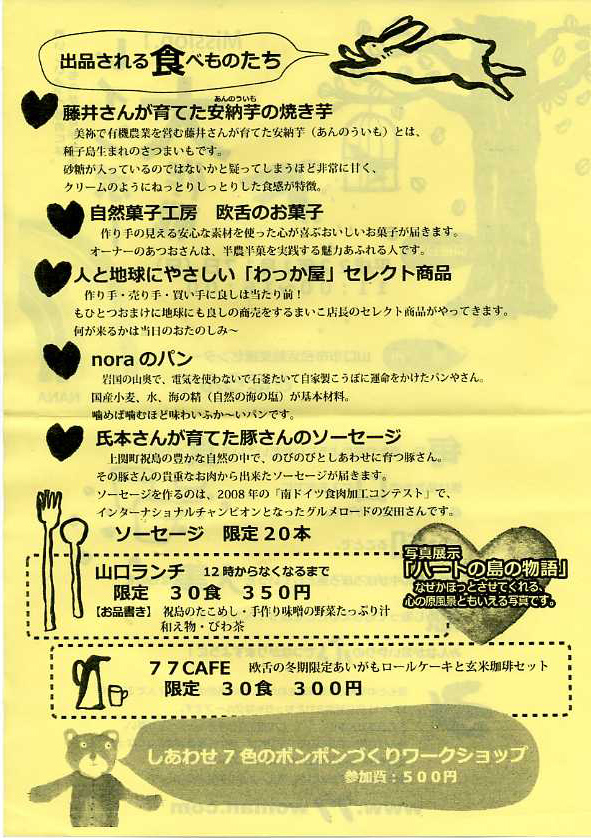 出品される食べものたち
あんのういも
藤井さんが育てた安納芋の焼き芋
美祢で有機農業を営む藤井さんが育てた安納芋（あんのういも）とは、
種子島生まれのさつまいもです。
砂糖が入っているのではないかと疑ってしまうほど非常に甘く、
クリームのようにねっとりしっとりした食感が特徴。
自然菓子工房　欧舌のお菓子
作り手の見える安心な素材を使った心が喜ぶおいしいお菓子が届きます。
オーナーのあつおさんは、半農半菓を実践する魅力あふれる人です。
人と地球にやさしい「わっか屋」セレクト商品
作り手・売り手・買い手に良しは当たり前！
もひとつおまけに地球にも良しの商売をするまいこ店長のセレクト商品がやってきます。
何が来るかは当日のおたのしみ～
noraのパン
岩国の山奥で、電気を使わないで石釜たいて自家製こうぼに運命をかけたパンやさん。
国産小麦、水、海の精（自然の海の塩）が基本材料。
噛めば噛むほど味わいふか～いパンです。
氏本さんが育てた豚さんのソーセージ
上関町祝島の豊かな自然の中で、のびのびとしあわせに育つ豚さん。
その豚さんの貴重なお肉から出来たソーセージが届きます。
ソーセージを作るのは、2008年の「南ドイツ食肉加工コンテスト」で、
インターナショナルチャンピオンとなったグルメロードの安田さんです。
ソーセージ　限定２０本
写真展示
「ハートの島の物語」
なぜかほっとさせてくれる、
心の原風景ともいえる写真です。
山口ランチ　12時からなくなるまで
限定　３０食　３５０円
【お品書き】祝島のたこめし・手作り味噌の野菜たっぷり汁
和え物・びわ茶
７７CAFE　欧舌の冬期限定あいがもロールケーキと玄米珈琲セット
限定　３０食　３００円
しあわせ７色のポンポンづくりワークショップ
参加費：５００円